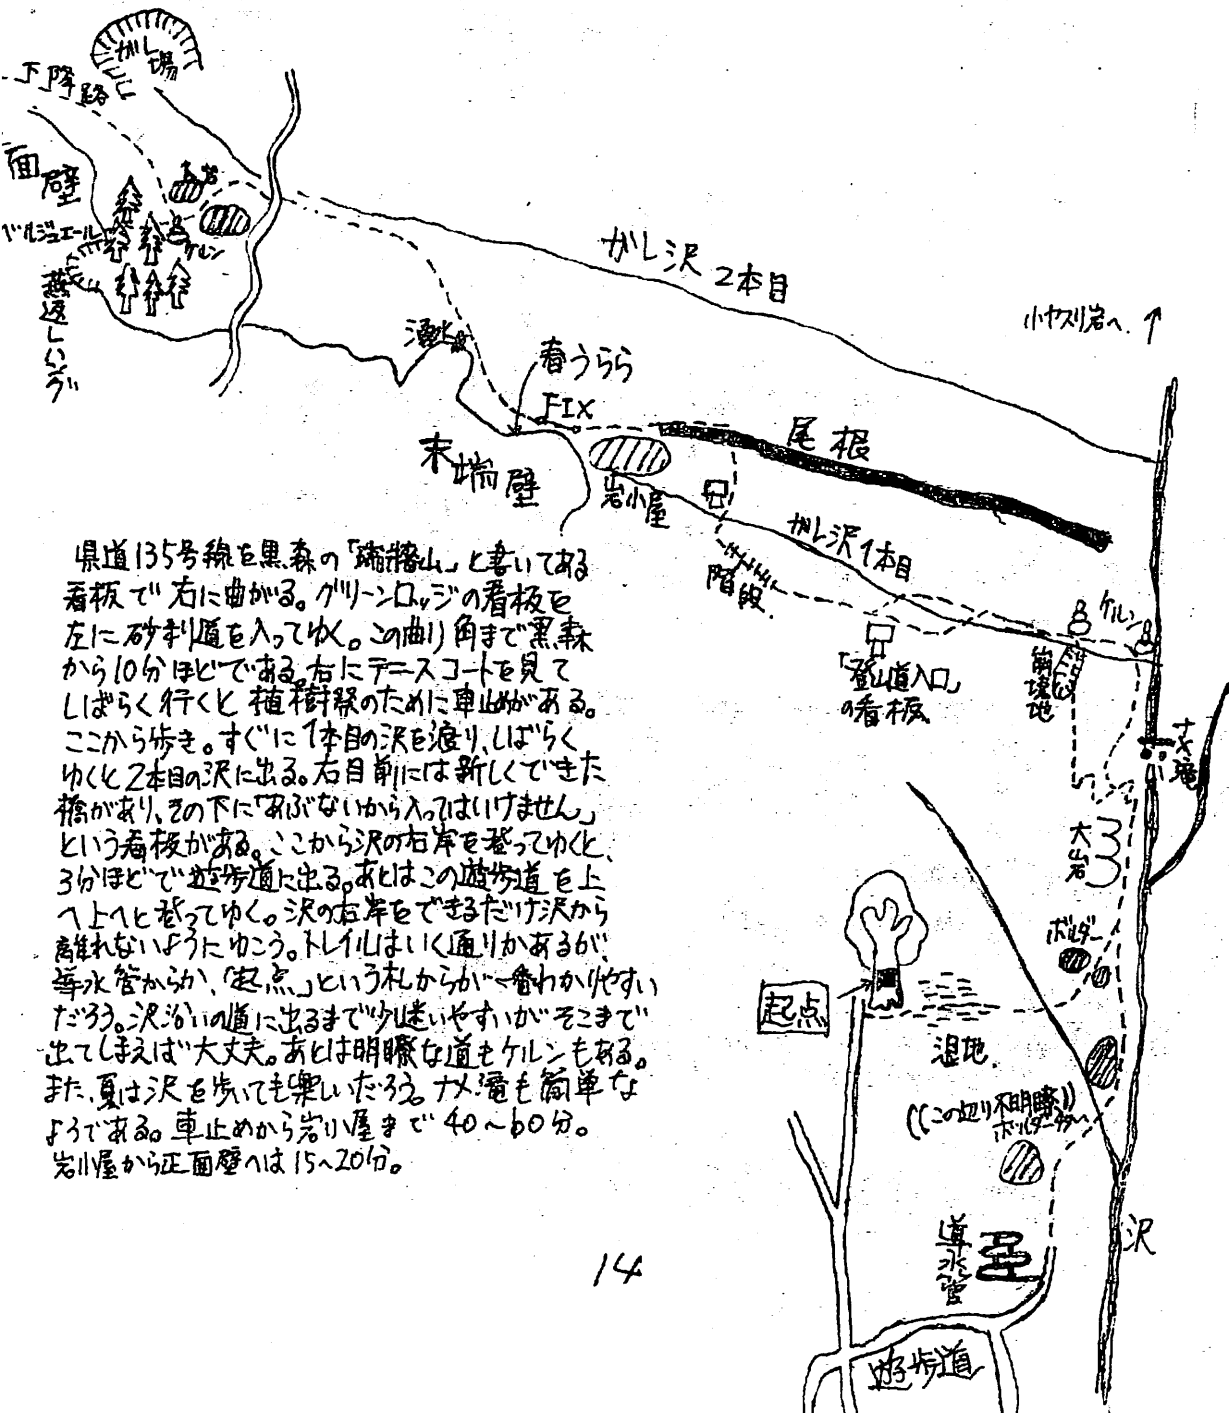 ガレ場
下降路
面壁
ベルジュエール
ケルン
燕返しハング
湧水
春うらら
FIX
末端壁
岩小屋
尾根
ガレ沢2本目
小ヤスリ岩へ
ガレ沢1本目
階段
ケルン
「登山道入口」
の看板
崩壊地
ナメ滝
大岩
ボルダー
起点
湿地
((この辺り不明瞭))
ボルダー多多
導水管
遊歩道
沢
県道135号線を黒森の「瑞牆山」と書いてある
看板で右に曲がる。グリーンロッジの看板を
左に砂利道を入ってゆく。この曲り角まで黒森
から10分ほどである。右にテニスコートを見て
しばらく行くと植樹祭のために車止めがある。
ここから歩き。すぐに1本目の沢を渡り、しばらく
ゆくと2本目の沢に出る。右目前には新しくできた
橋があり、その下に「あぶないから入ってはいけません」
という看板がある。ここから沢の右岸を登ってゆくと、
3分ほどで遊歩道に出る。あとはこの遊歩道を上
へ上へと登ってゆく。沢の右岸をできるだけ沢から
離れないようにゆこう。トレイルはいく通りかあるが、
導水管からか、「起点」という札からが一番わかりやすい
だろう。沢沿いの道に出るまで少し迷いやすいがそこまで
出てしまえば大丈夫。あとは明瞭な道もケルンもある。
また、夏は沢を歩いても楽しいだろう。ナメ滝も簡単な
ようである。車止めから岩小屋まで40〜60分。
岩小屋から正面壁へは15〜20分。
14